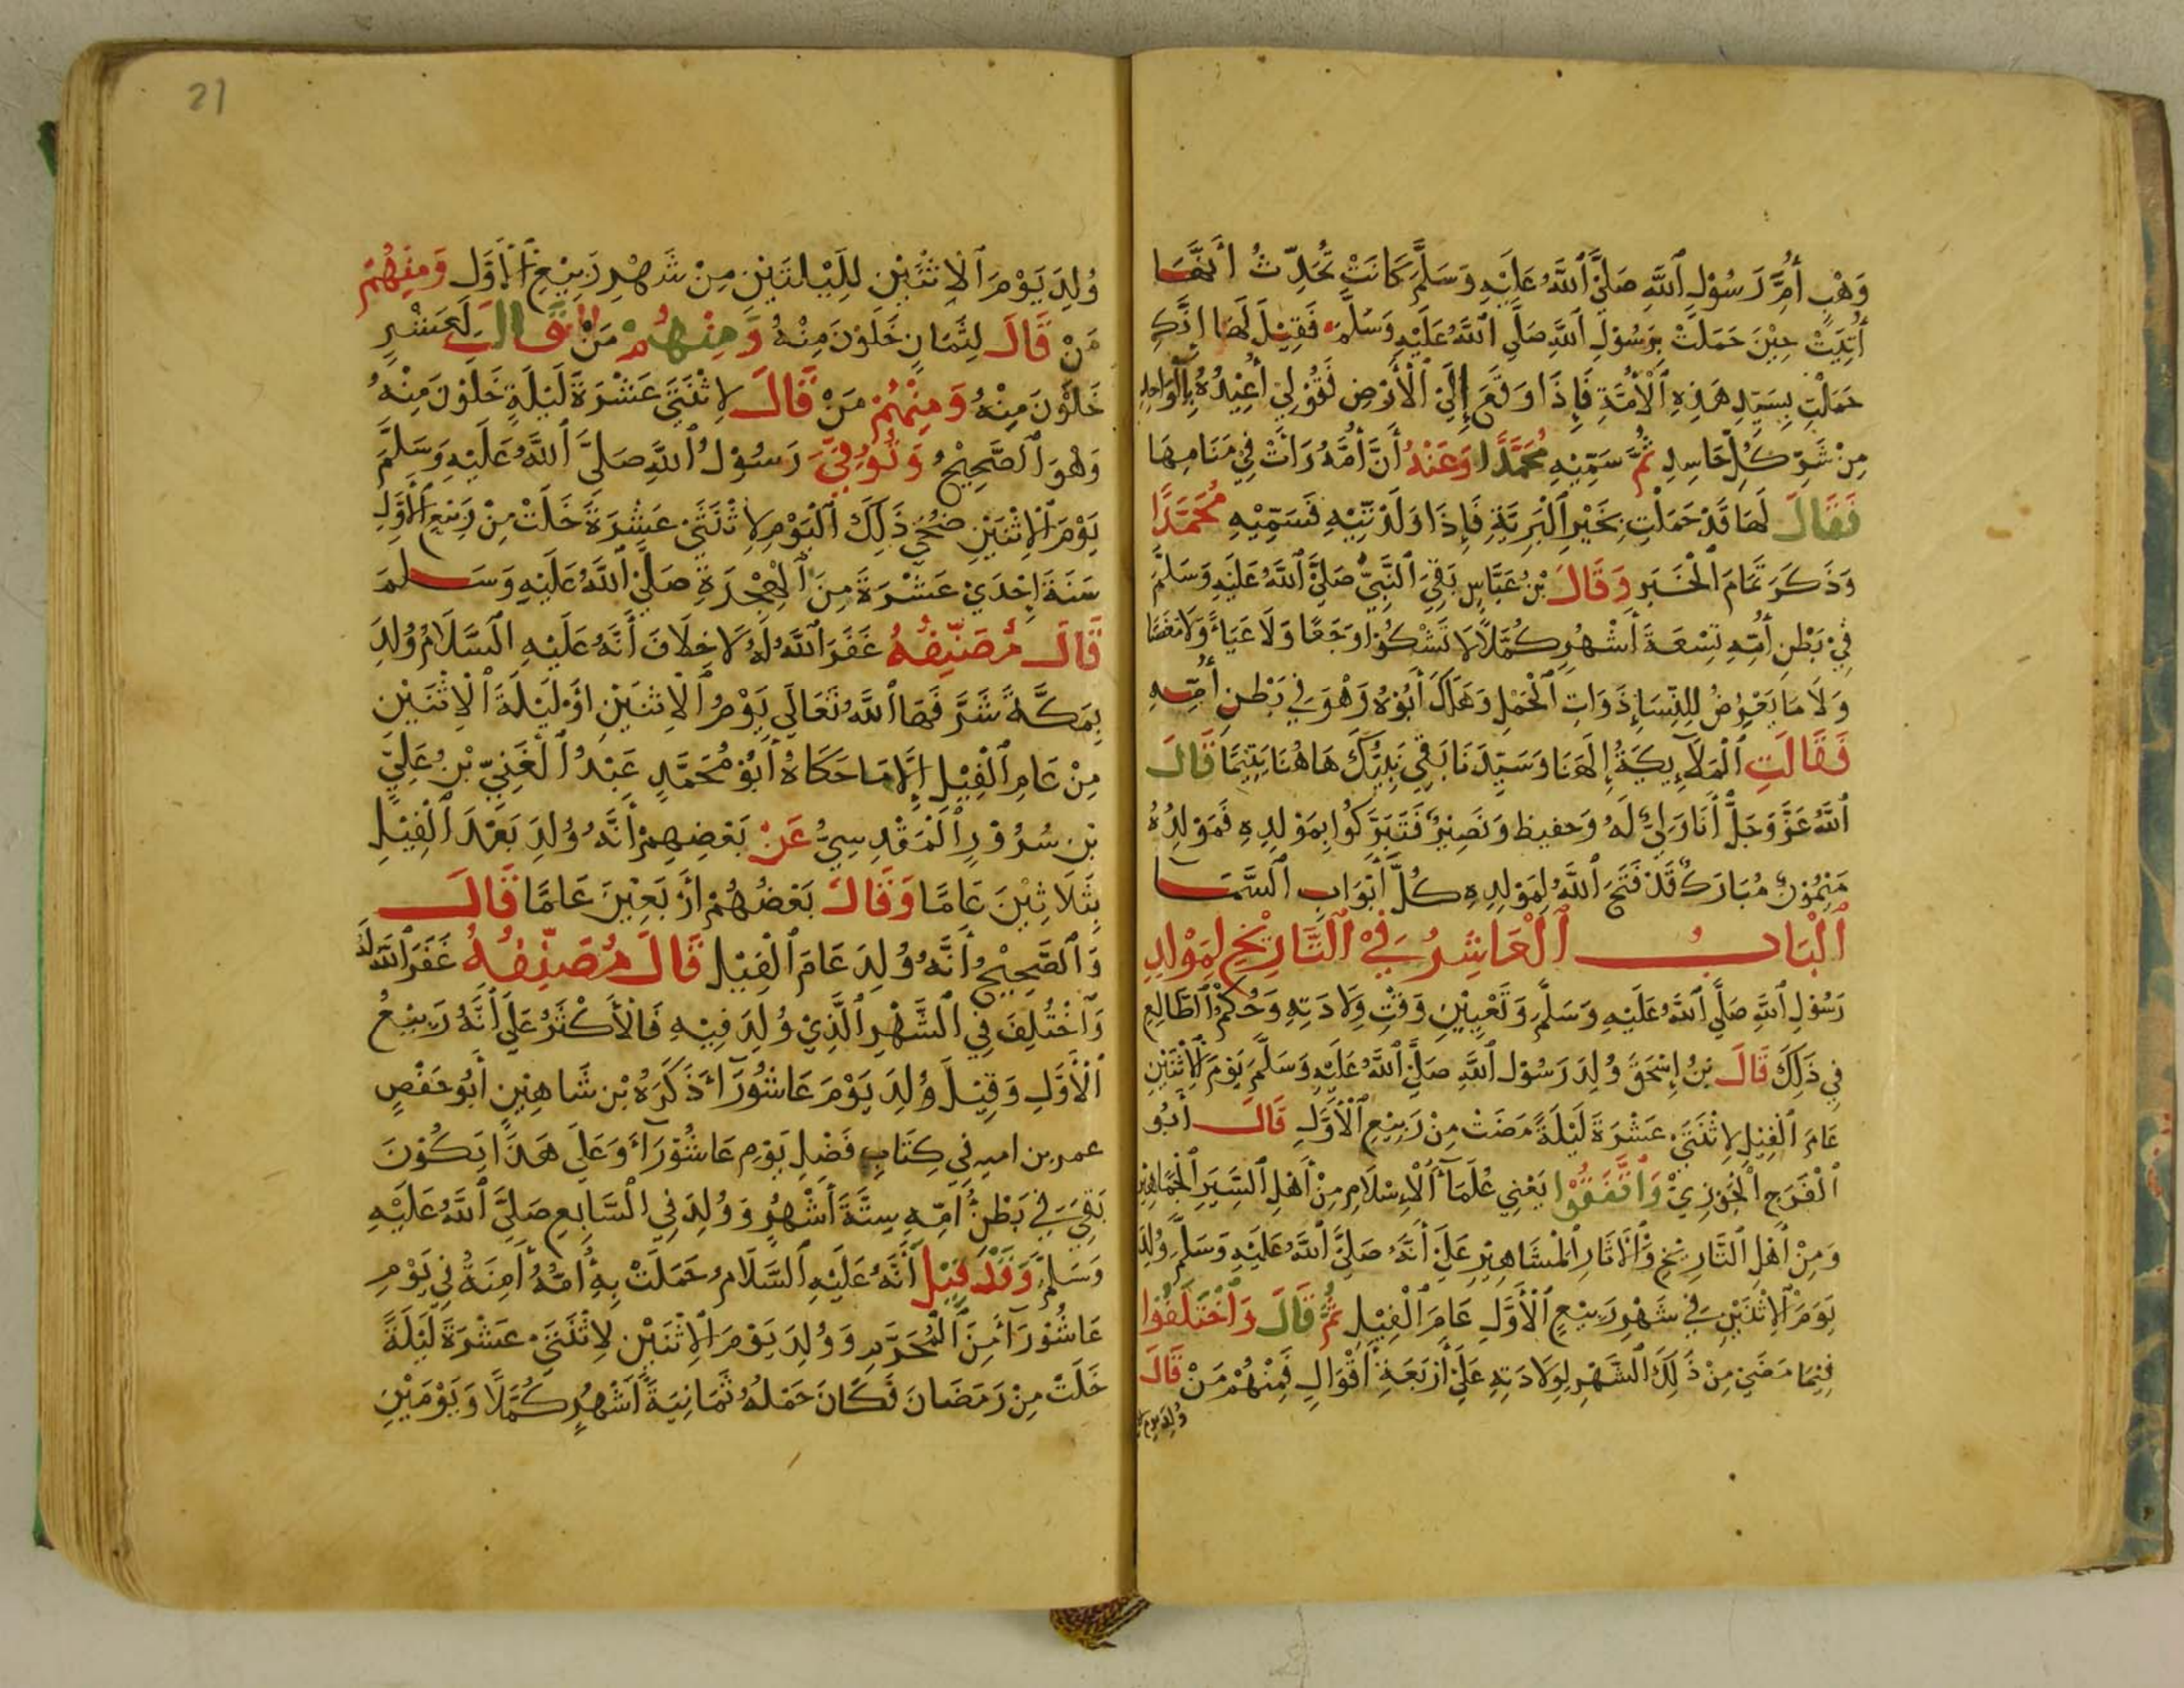 وَهْبٍ أُمَّ رَسُوْلِ ٱللَّهِ صَلَّيَ ٱللَّهُ عَلَيْهِ وَسَلَّمَ كَانَتْ تُحَدِّثُ أَنَّهَا
أُتِيَتْ حِيْنَ حَمَلَتْ بِرَسُوْلِ ٱللَّهِ صَلَّي ٱللَّهُ عَلَيْهِ وَسَلَّمَ فَقِيْلَ لَهَا إِنَّكِ
حَمَلْتِ بِسَيِّدِ هَذِهِ ٱلْأُمَّةِ فَإِذَا وَقَعَ إِلَيَ ٱلْأَرْضِ فَقُوْلِيْ أُعِيْذُهُ بِٱلْوَاحِدِ
مِنْ شَرِّ كُلِّ حَاسِدٍ ثُمَّ سَمِّيْهِ مُحَمَّدًا وَعَنْهُ أَنَّ أُمَّهُ رَأَتْ فِيْ مَنَامِهَا
فَقَالَ لَهَا قَدْ حَمَلْتِ بِخَيْرِ ٱلْبَرِيَّةِ فَإِذَا وَلَدْتِيْهِ فَسَمِّيْهِ مُحَمَّدًا
وَذَكَرَ تَمَامَ ٱلْخَبَرِ وَقَالَ بْنُ عَبَّاسٍ بَقِيَ ٱلنَّبِيُّ صَلَّيَ ٱللَّهُ عَلَيْهِ وَسَلَّمَ
فِيْ بَطْنِ أُمِّهِ تِسْعَةَ أَشْهُرٍ كُمَّلًا لَا تَشْكُوْا وَجَعًا وَلَا عَيَاءً وَلَا مَغَصًا
وَلَا مَا يَعْرِضُ لِلنِّسَاءِ ذَوَاتِ ٱلْحَمْلِ وَهَلَكَ أَبُوْهُ وَهْوَ فِيْ بَطْنِ أُمِّهِ
فَقَالَتِ ٱلْمَلَآئِكَةُ إِلَهَنَا وَسَيِّدَنَا بَقِيَ نَبِيُّكَ هَاهُنَا يَتِيْمًا قَالَ
ٱللَّهُ عَزَّ وَجَلَّ أَنَا وَلِيٌّ لَهُ وَحَفِيظ وَنَصِيْرٌ فَتَبَرَّكُوا بِمَوْلِدِهِ فَمَوْلِدُهُ
مَيْمُوْنٌ مُبَارَكٌ قَدْ فَتَحَ ٱللَّهُ لِمَوْلِدِهِ كُلَّ أَبْوَابِ ٱلسَّمَا
ٱلْبَابُ ٱلْعَاشِرُ فِيْ ٱلتَّارِيْخِ لِمَوْلِدِ
رَسُوْلِ ٱللَّهِ صَلَّي ٱللَّهُ عَلَيْهِ وَسَلَّمَ وَتَعْيِيْنِ وَقْتِ وِلَادَتِهِ وَحُكْمِ ٱلطَّالِعِ
فِي ذَلِكَ قَالَ بْنُ إِسْحَقَ وُلِدَ رَسُوْلُ ٱللَّهِ صَلَّيَ ٱللَّهُ عَلَيْهِ وَسَلَّمَ يَوْمَ ٱلْإِثْنَيْنِ
عَامَ ٱلْفِيْلِ لِاثْنَتَيْ عَشْرَةَ لَيْلَةً مَضَتْ مِنْ رَبِيْعٍ ٱلْأَوَّلِ قَالَ أَبُو
ٱلْفَرَجِ ٱلْجَوْزِيُّ وَٱتَّفَقُوْا يَعْنِي عُلَمَآءَ ٱلْإِسْلَامِ مِنْ أَهْلِ ٱلسِّيَرِ ٱلْجَمَاهِيْرِ
وَمِنْ أَهْلِ ٱلتَّارِيْخِ وَٱلْآثَارِ ٱلْمَشَاهِيْرِ عَلَيَ أَنَّهُ صَلَّيَ ٱللَّهُ عَلَيْهِ وَسَلَّمَ وُلِدَ
يَوْمَ ٱلْإِثْنَيْنِ فِيْ شَهْرِ رَبِيْعٍ ٱلْأَوَّلِ عَامَ ٱلْفِيْلِ ثُمَّ قَالَ وَٱخْتَلَفُوْا
فِيْمَا مَضَيَ مِنْ ذَلِكَ ٱلشَّهْرِ لِوِلَادَتِهِ عَلَيَ أَرْبَعَةِ أَقْوَالٍ فَمِنْهُمْ مَنْ قَالَ
وُلِدَ يوم
21
وُلِدَ يَوْمَ ٱلْإِثْنَيْنِ لِلَيْلَتَيْنِ مِنْ شَهْرِ رَبِيْعِ ٱلْأَوَّلِ وَمِنْهُمْ
مَنْ قَالَ لِثَمَانٍ خَلَوْنَ مِنْهُ وَمِنْهُمْ مَنْ قَالَ لِعَشْرٍ
خَلَوْنَ مِنْهُ وَمِنْهُمْ مَنْ قَالَ لِاثْنَتَيْ عَشْرَةَ لَيْلَةٍ خَلَوْنَ مِنْهُ
وَهْوَ ٱلصَّحِيْحُ وَتُوُفِّيَ رَسُوْلُ ٱللَّهِ صَلَّيَ ٱللَّهُ عَلَيْهِ وَسَلَّمَ
يَوْمَ ٱلْإِثْنَيْنِ ضُحَيْ ذَلِكَ ٱلْيَوْمِ لِاثْنَتَيْ عَشْرَةَ خَلَتْ مِنْ رَبِيْعٍ ٱلْأَوَّلِ
سَنَةَ إِحْدَيْ عَشْرَةَ مِنَ ٱلْهِجْرَةِ صَلَّيَ ٱللَّهُ عَلَيْهِ وَسَلَّمَ
قَالَ مُصَنِّفُهُ غَفَرَ ٱللَّهُ لَهُ لَا خِلَافَ أَنَّهُ عَلَيْهِ ٱلسَّلَامُ وُلِدَ
بِمَكَّةَ شَرَّفَهَا ٱللَّهُ تَعَالَي يَوْمَ ٱلْإِثْنَيْنِ أَوْ لَيْلَةَ ٱلْإِثْنَيْنِ
مِنْ عَامِ ٱلْفِيْلِ إِلَّا مَا حَكَاهُ أَبُوْ مُحَمَّدٍ عَبْدُ ٱلْغَنِيِّ بْنُ عَلِيِّ
بْنِ سُرُوْرٍ ٱلْمَقْدِسِيُّ عَنْ بَعْضِهِمْ أَنَّهُ وُلِدَ بَعْدَ ٱلْفِيْلِ
بِثَلَاثِيْنَ عَامًا وَقَالَ بَعْضُهُمْ أَرْبَعِيْنَ عَامًا قَالَ
وَٱلصَّحِيْحُ أَنَّهُ وُلِدَ عَامَ ٱلْفِيْلِ قَالَ مُصَنِّفُهُ غَفَرَ ٱللَّهُ لَهُ
وَٱخْتُلِفَ فِي ٱلشَّهْرِ ٱلَّذِيْ وُلِدَ فِيْهِ فَالْأَكْثَرُ عَلَيَ أَنَّهُ رَبِيْعُ
ٱلْأَوَّلِ وَقِيْلَ وُلِدَ يَوْمَ عَاشُوْرَآءَ ذَكَرَهُ بْن شَاهِيْنٍ أَبُو حَفْصٍ
عمر بن اميه فِي كِتَابِ فَضْلِ يَوْمِ عَاشُوْرَآءَ وَعَلَي هَذَا يَكُوْنَ
بَقِيَ فِيْ بَطْنِ أُمِّهِ سِتَّةَ أَشْهُرٍ وَوُلِدَ فِي ٱلسَّابِعِ صَلَّيَ ٱللَّهُ عَلَيْهِ
وَسَلَّمَ وَقَدْ قِيْلَ أَنَّهُ عَلَيْهِ ٱلسَّلَامُ حَمَلَتْ بِهِ أُمُّهُ أَمِنَةُ فِي يَوْمِ
عَاشُوْرَآءَ مِنَ ٱلْمُحَرَّمِ وَوُلِدَ يَوْمَ ٱلْإِثْنَيْنِ لِاثْنَتَيْ عَشْرَةَ لَيْلَةً
خَلَتْ مِنْ رَمَضَانَ فَكَانَ حَمْلُهُ ثَمَانِيَةَ أَشْهُرٍ كُمَّلًا وَيَوْمَيْنِ